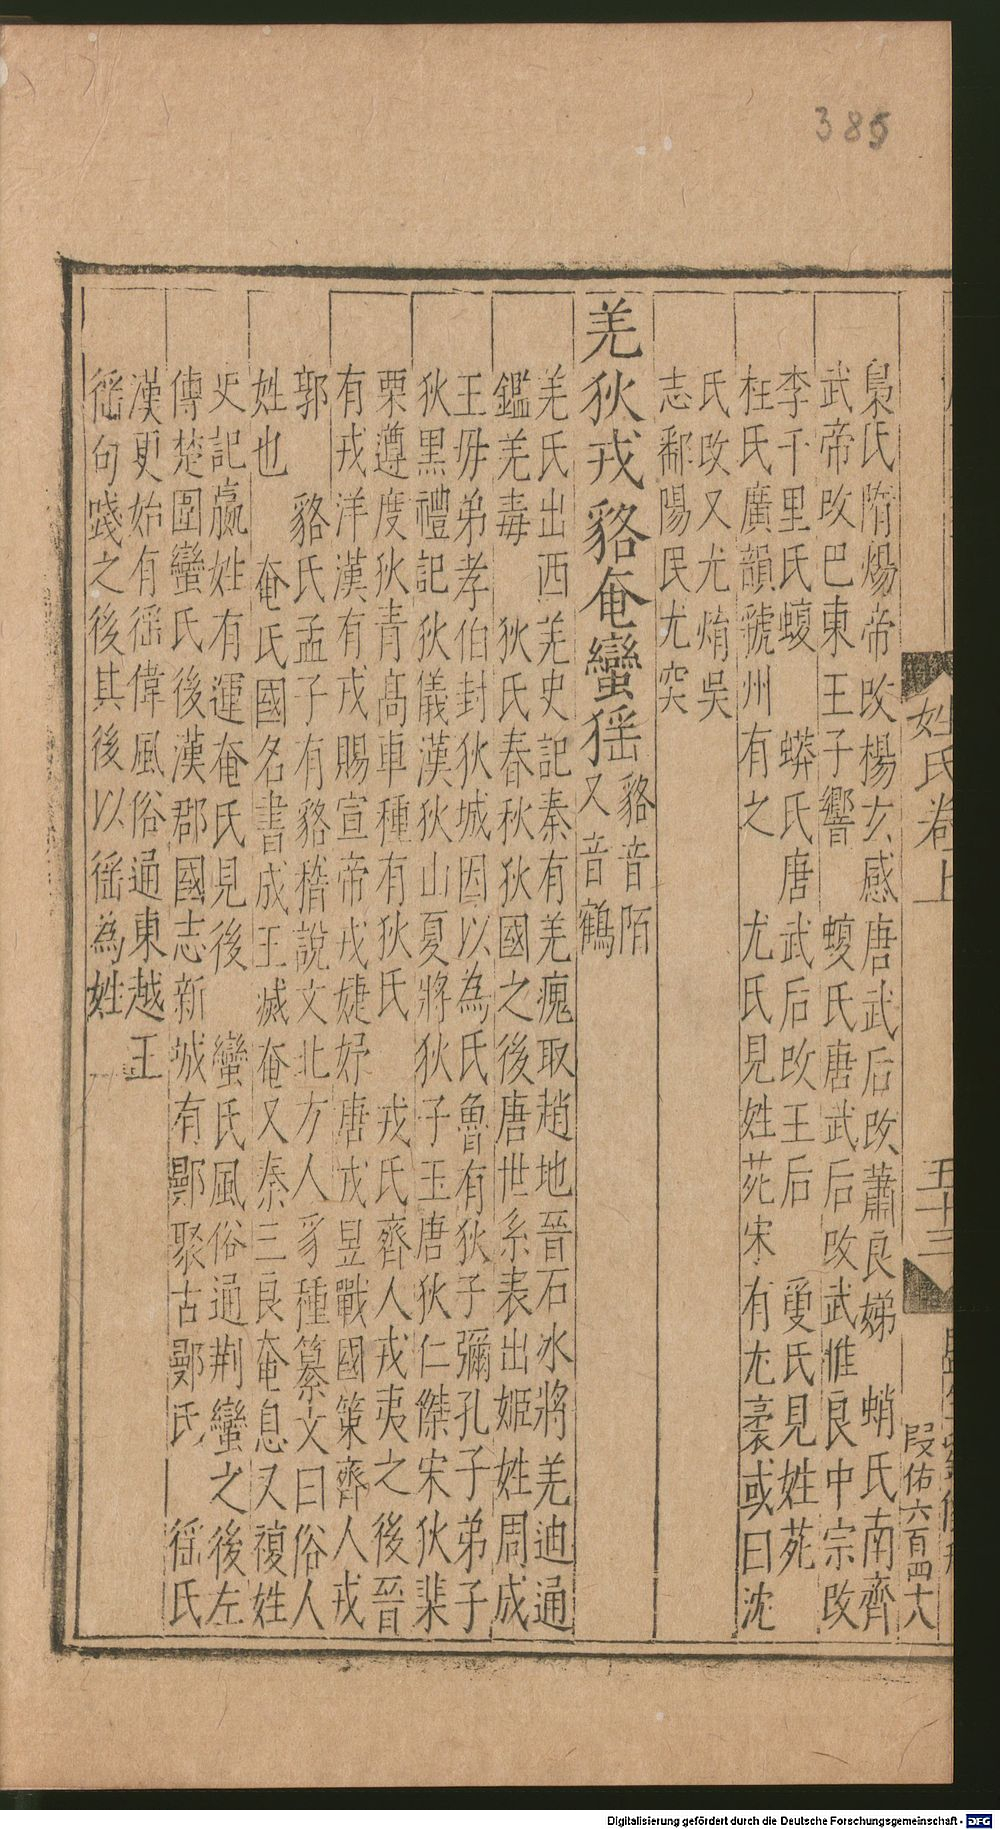 385
姓氏卷上
五十三
段佑六百四十八
梟氏隋煬帝改楊玄感唐武后改蕭良娣　蛸氏南齊
武帝改巴東王子響　蝮氏唐武后改武惟良中宗改
李千里氏蝮　蟒氏唐武后改王后　㕙氏見姓苑
枉氏廣韻虢州有之　尤氏見姓苑宋有尤袤或曰沈
氏改又尤焴吳
志鄱陽民尤突
羌狄戎貉奄蠻猺貉音陌
又音鶴
羌氏出西羌史記秦有羌瘣取趙地晉石氷將羌迪通
鑑羌毒　狄氏春秋狄國之後唐世系表出姬姓周成
王毋弟孝伯封狄城因以為氏魯有狄子彌孔子弟子
狄黑禮記狄儀漢狄山夏將狄子玉唐狄仁傑宋狄棐
栗遵度狄青髙車種有狄氏　戎氏齊人戎夷之後晉
有戎洋漢有戎賜宣帝戎婕妤唐戎昱戰國策齊人戎
郭　貉氏孟子有貉稽說文北方人豸種纂文曰俗人
姓也　奄氏國名書成王滅奄又秦三良奄息又複姓
史記嬴姓有運奄氏見後　蠻氏風俗通荆蠻之後左
傳楚圍蠻氏後漢郡國志新城有鄤聚古鄤氏　徭氏
漢更始有徭偉風俗通東越王
徭句踐之後其後以徭為姓
Digitalisierung gefördert durch die Deutsche Forschungsgemeinschaft - DFG